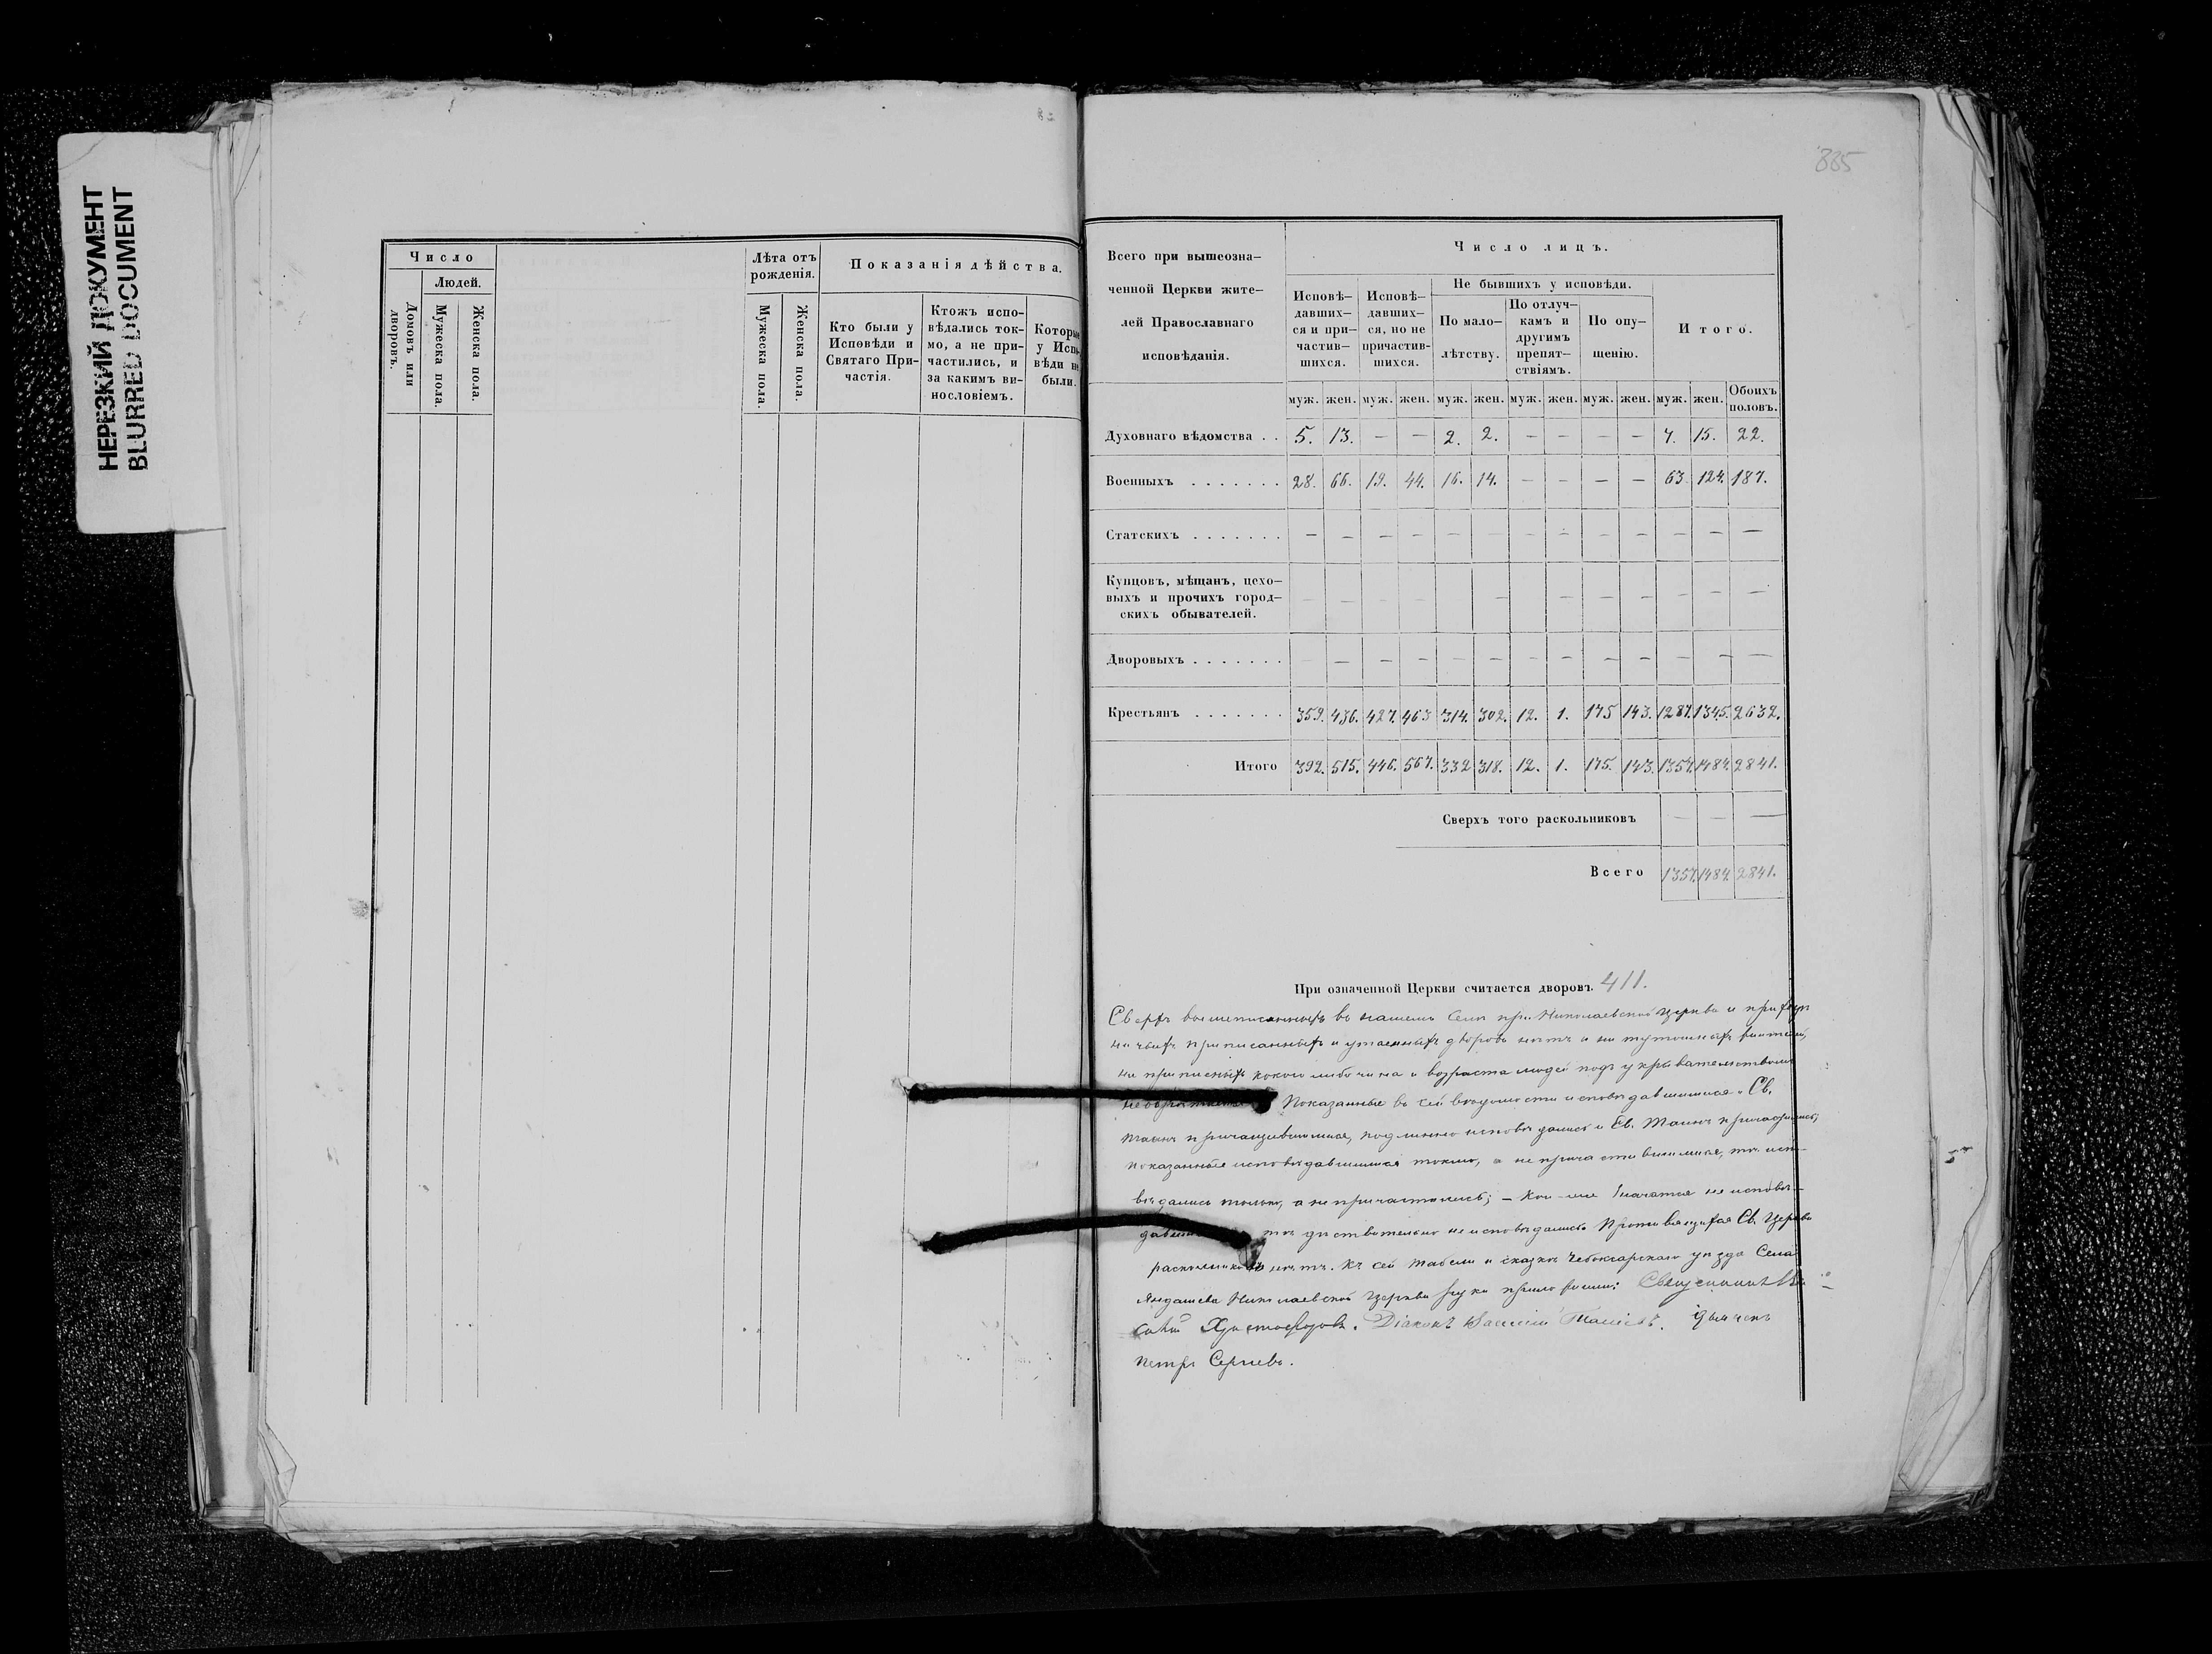 НЕРЕЗКИЙ ДОКУМЕНТ
BLURRED DOCUMENT
Число
Домовъ или дворовъ.
Людей.
Мужеска пола.
Женска пола.
Лѣта отъ рожденія.
Мужеска пола.
Женска пола.
Показанія дѣйства.
Кто были у Исповѣди и Святаго Причастія.
Ктожъ исповѣдались токмо, а не причастились, и за какимъ винословіемъ.
Которые у Исповѣди не были.
885
Всего при вышеозна-
ченной Церкви жите-
лей Православнаго
исповѣданія.
Число лицъ.
Исповѣ-
давших-
ся и при-
частив-
шихся.
Исповѣ-
давших-
ся, но не
причастив-
шихся.
Не бывшихъ у исповѣди.
По мало-
лѣтству.
По отлуч-
камъ и
другимъ
препят-
ствіямъ.
По опу-
щенію.
Итого.
муж. жен. муж. жен. муж. жен. муж. жен. муж. жен. муж. жен. Обоихъ половъ.
Духовнаго вѣдомства . . 5. 13. — — 2. 2. — — — — 7. 15. 22.
Военныхъ . . . . . . . 28. 66. 19. 44. 16. 14. — — — — 63. 124. 187.
Статскихъ . . . . . . . — — — — — — — — — — — — —
Купцовъ, мѣщанъ, цехо-
выхъ и прочихъ город-
скихъ обывателей. — — — — — — — — — — —
Дворовыхъ . . . . . . . — — — — — — — — — — — — —
Крестьянъ . . . . . . . 359. 436. 427. 463 314. 302. 12. 1. 175 143. 1287. 1345. 2632.
Итого 392. 515. 446. 567. 332 318. 12. 1. 175. 143. 1357. 1484. 2841.
Сверхъ того раскольниковъ — — —
Всего 1357. 1484. 2841.
При означенной Церкви считается дворовъ 411.
Сверхъ вышеписанныхъ въ нашемъ селѣ при Николаевской церкви и
приписанныхъ и утаенныхъ дворовъ нѣтъ и ни
какого либо чина и возраста людей подъ укрывательствомъ
Показанные въ сей вѣдомости исповѣдавшимися и Св.
Таинъ причащившимися, подлинно исповѣдались и Св. Таинъ
показанные исповѣдавшимися токмо, а не причастившимися, тѣ испо-
вѣдались только, а не причастились; — Кои же значатся не исповѣ-
тѣ дѣствительно не исповѣдались. Св. Церкви
раскольниковъ нѣтъ. Къ сей табели и сказкѣ Чебоксарскаго уѣзда Села
Яндашева Николаевской церкви руки приложили: Священникъ
Христофоровъ. Діаконъ Василій Дьячекъ
Петръ Сергіевъ.